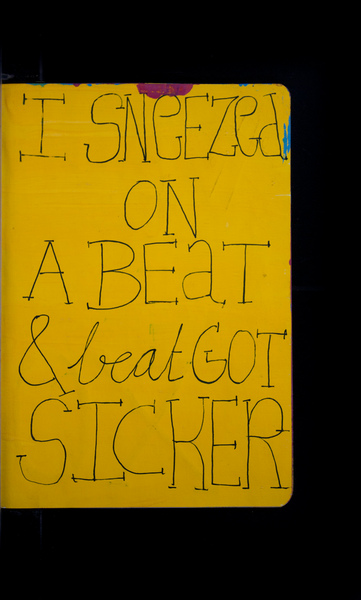 I SNeEZed
ON
A BEaT
& beat GOT
SICKER